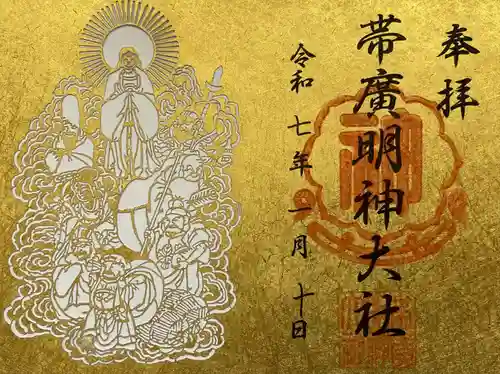 奉拝
帯廣明神大社
令和七年一月十日